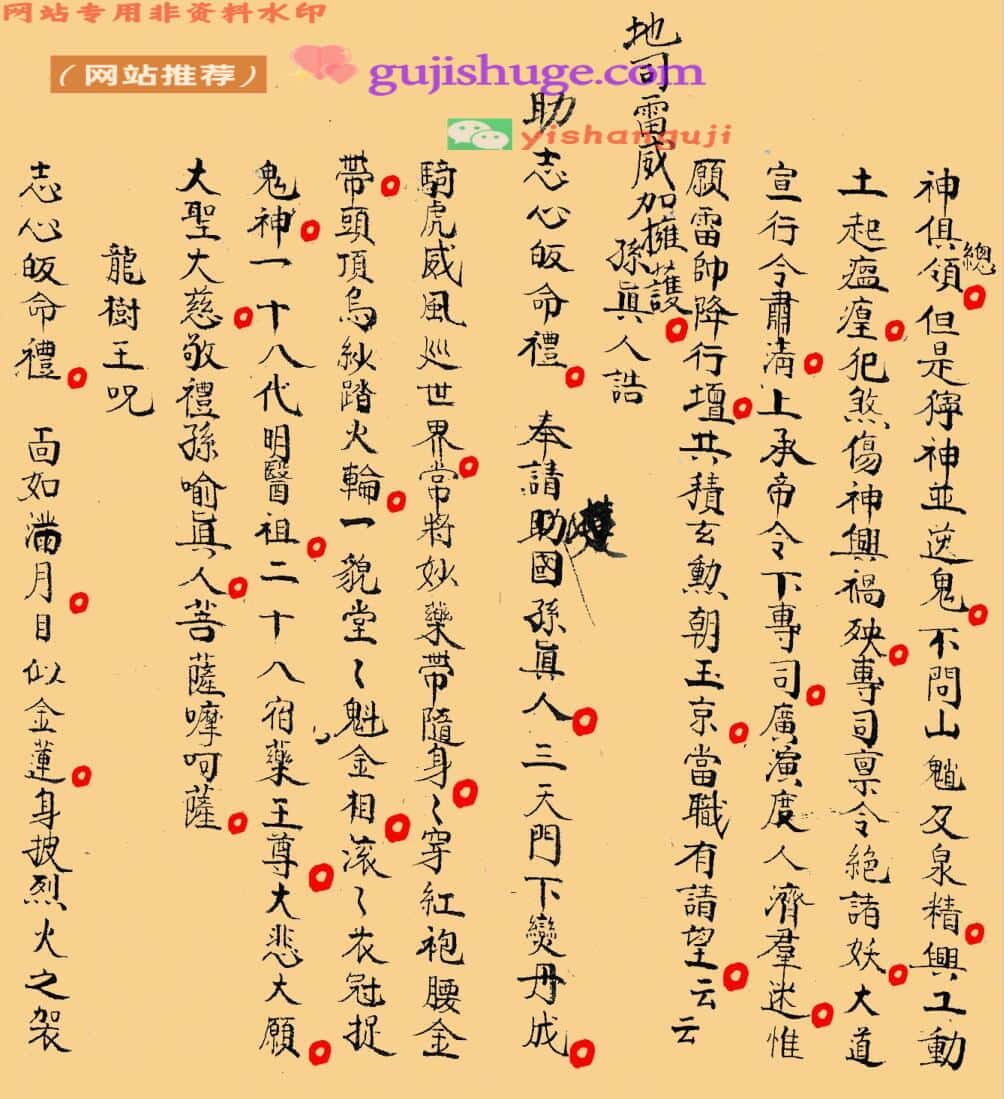 网站专用非资料水印
（网站推荐） gujishuge.com
yishanguji
神俱領總但是獰神並送鬼不問山魈及泉精興工動
土起瘟㾮犯煞傷神興禍殃專司禀令絕諸妖大道
宣行令肅淸上承帝令下專司廣演度人濟羣迷惟
願雷帥降行壇共積玄勲朝玉京當職有請望云云
地司雷威加擁護
孫眞人誥
助志心皈命禮 奉請助國孫眞人三天門下變丹成
騎虎威風巡世界常將妙藥帶隨身〻穿紅袍腰金
帶頭頂烏紗踏火輪一貌堂〻魁金相滚〻衣冠捉
鬼神一十八代明醫祖二十八宿藥王尊大悲大願
大聖大慈敬禮孫喻眞人菩薩嚤呵薩
龍樹王呪
志心皈命禮 面如滿月目似金蓮身披烈火之袈